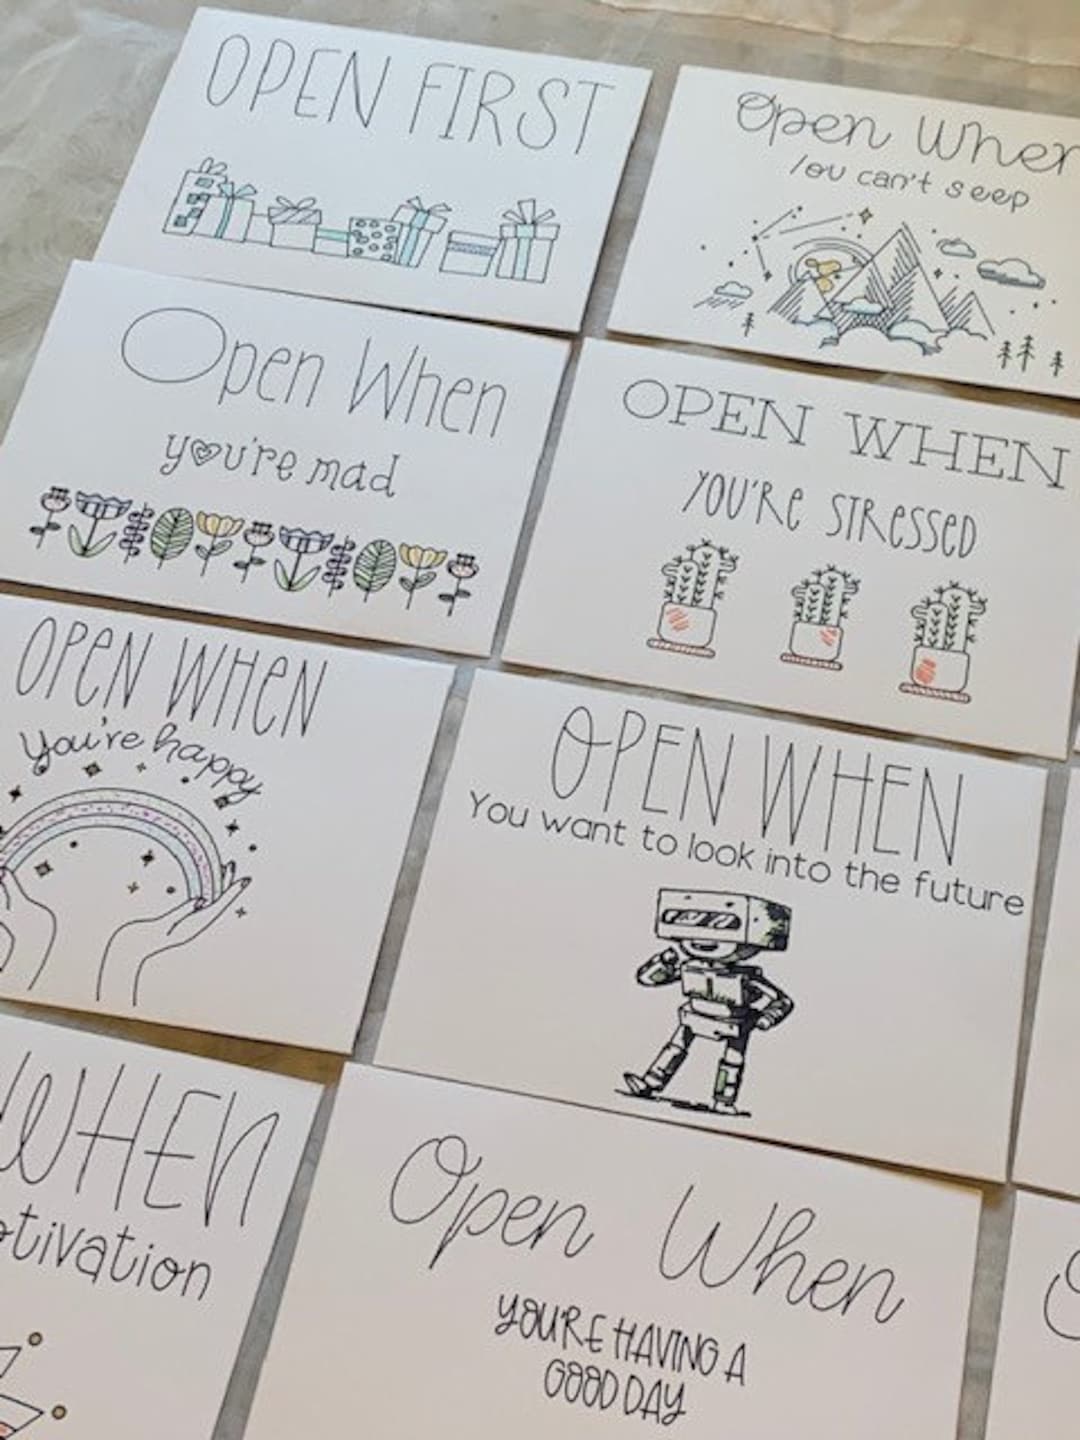 OPEN FIRST
Open When
you can't s eep
Open When
you're mad
OPEN WHEN
YOU'RE STRESSED
OPEN WHEN
you're happy
OPEN WHEN
You want to look into the future
WHEN
otivation
Open When
YOU'RE HAVING A
GOOD DAY